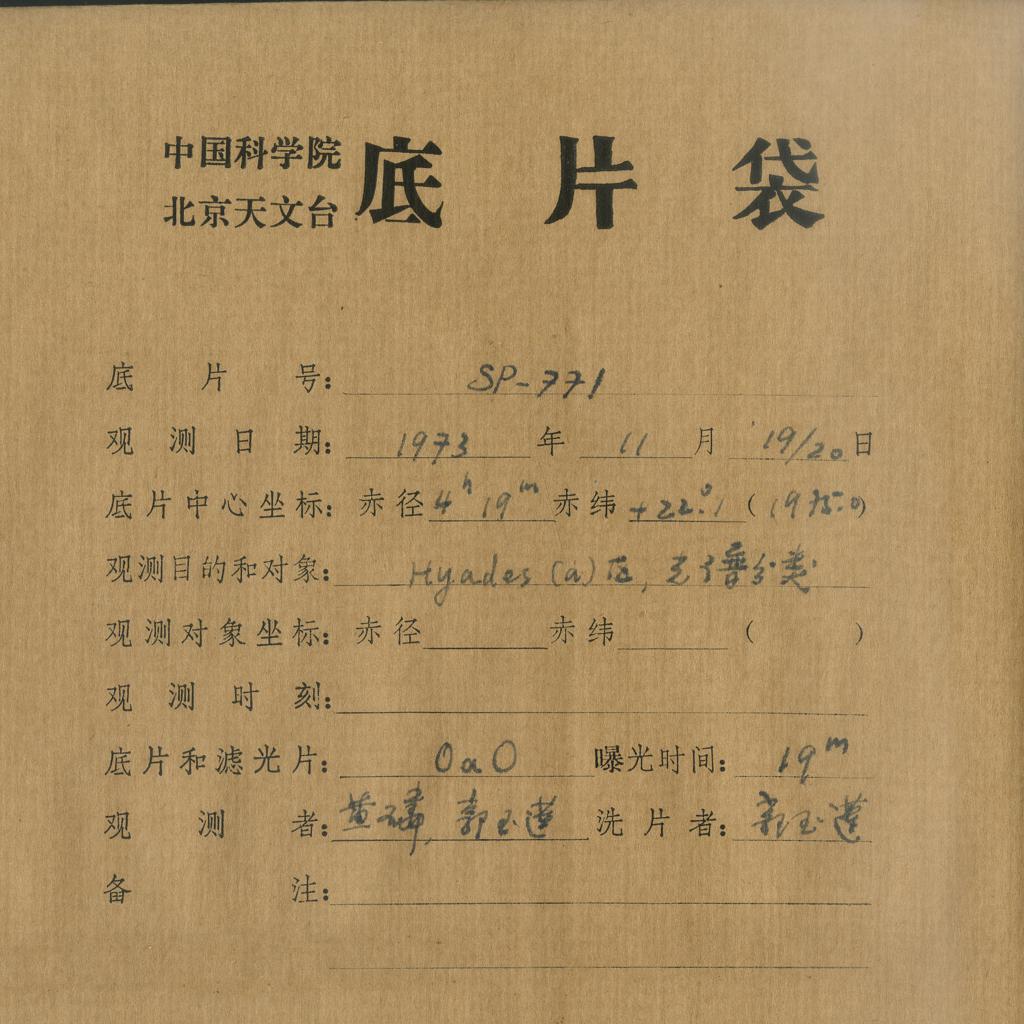 中国科学院
北京天文台
底片袋
底片号: SP-771
观测日期: 1973年11月19/20日
底片中心坐标: 赤径4h19m赤纬+22°.1(1975.0)
观测目的和对象: Hyades (a)区,光谱分类
观测对象坐标: 赤径 赤纬 ( )
观测时刻:
底片和滤光片: OaO 曝光时间: 19m
观测者: 黄磷,郭玉莲 洗片者: 郭玉莲
备注: